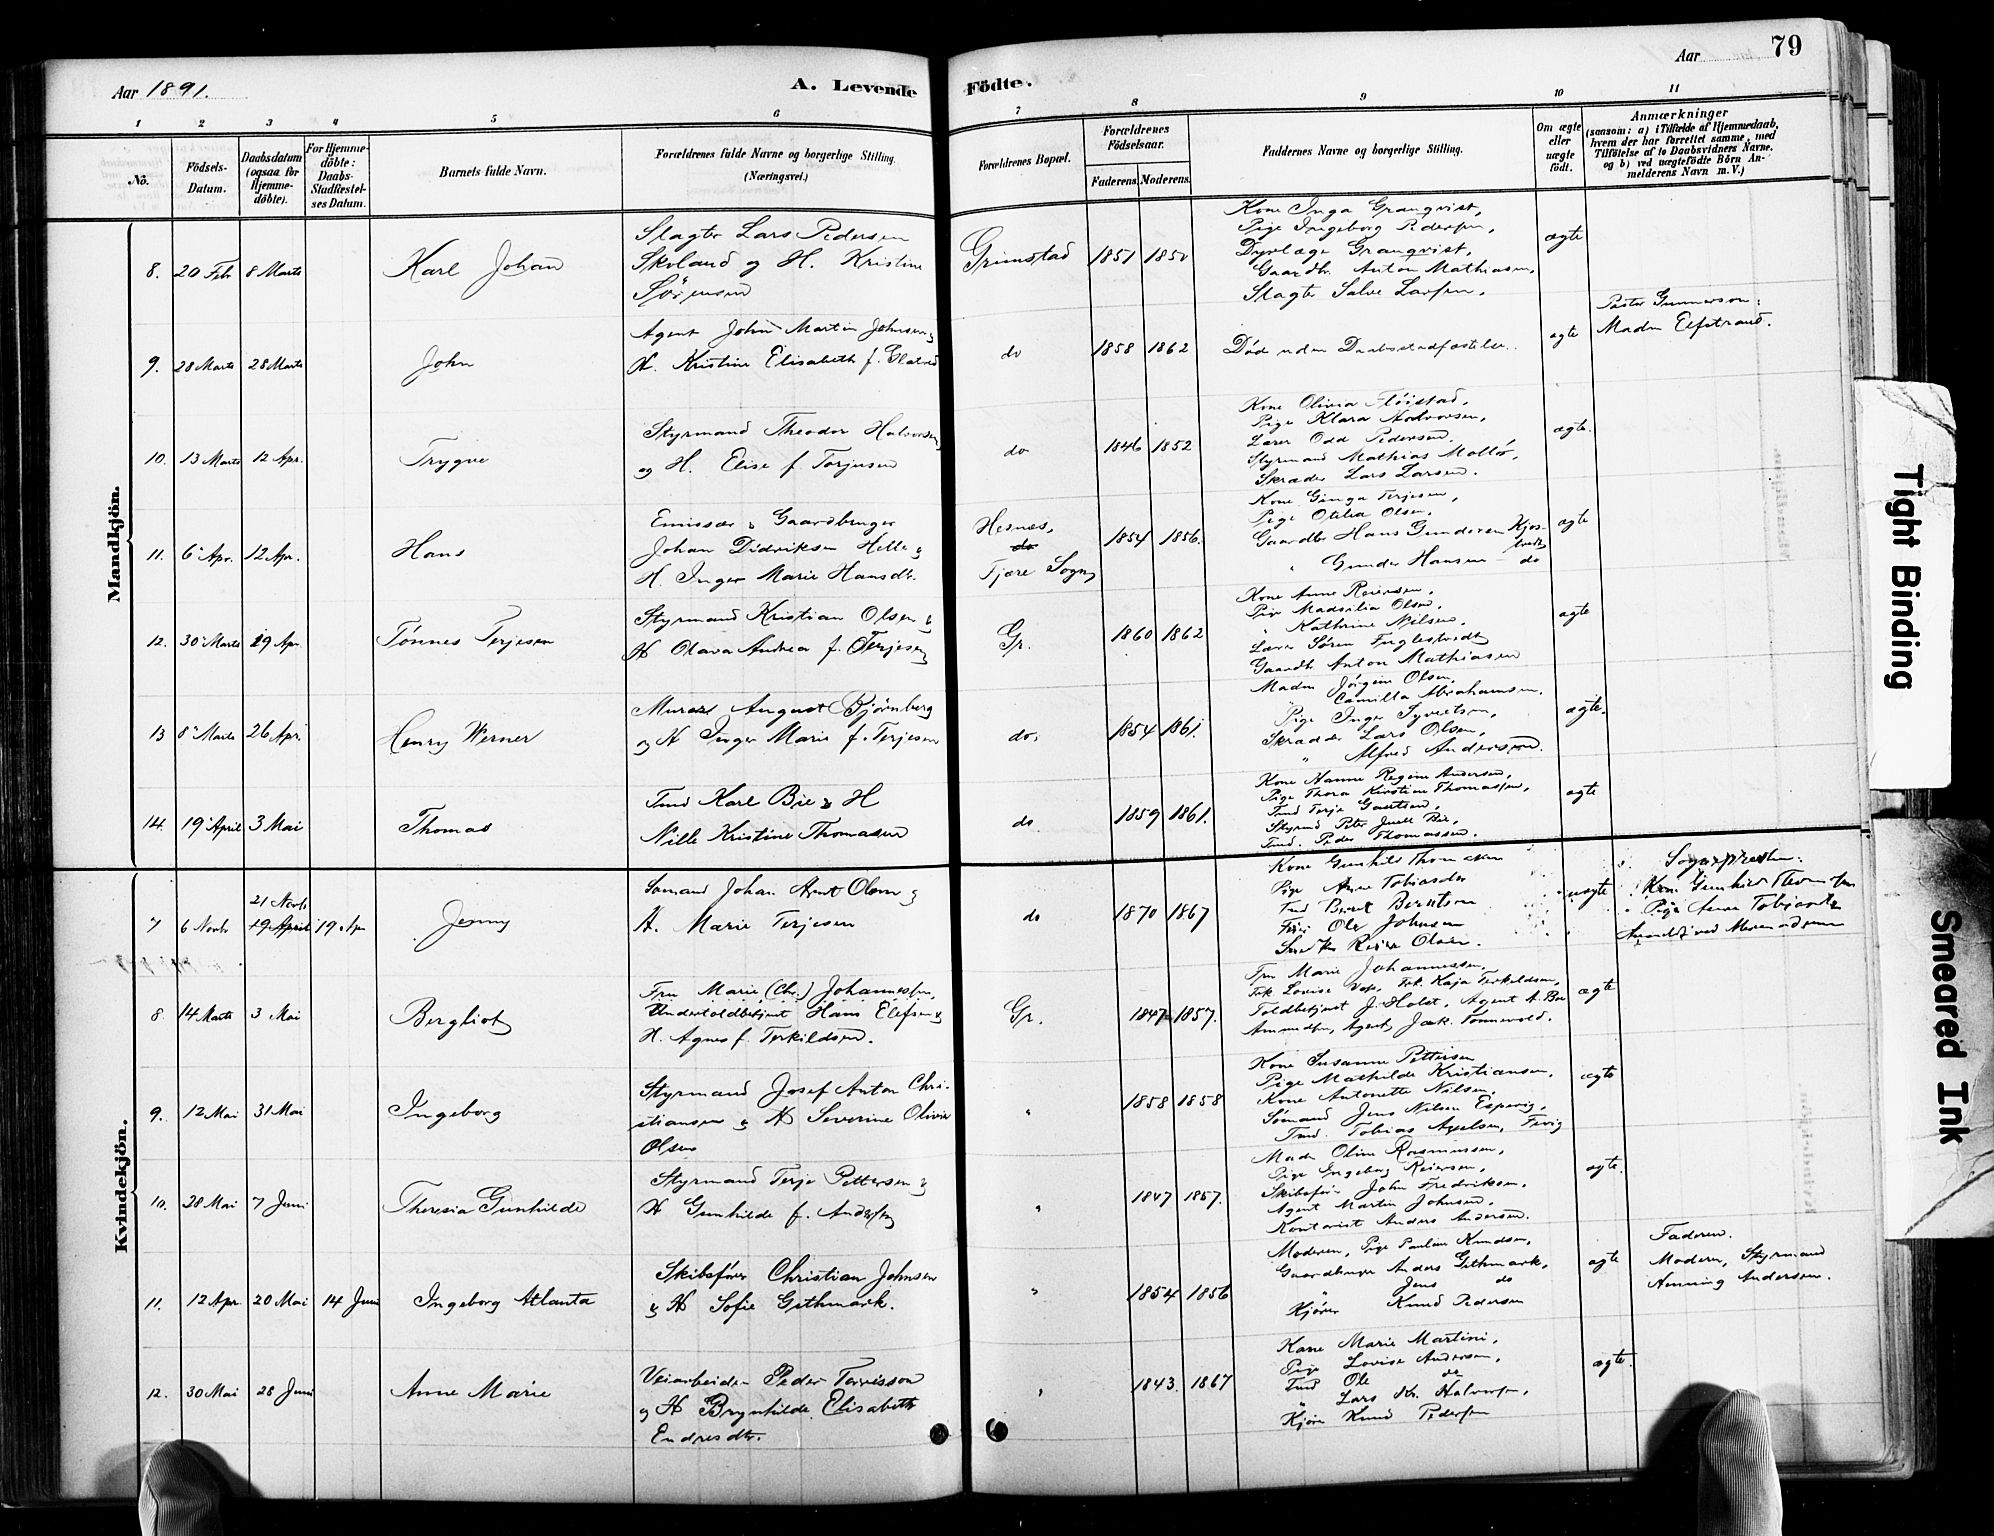 Aar 1891.
A. Levende
Födte.
Aar
79
1
2
3
4
5
6
7
8
9
10
11
No.
Födsels-
Datum.
Daabsdatum
(ogsaa for
Hjemme-
döbte).
For Hjemme-
döbte:
Daabs-
Stadfæstel-
ses Datum.
Barnets fulde Navn.
Forældrenes fulde Navne og borgerlige Stilling.
(Næringsvei.)
Forældrenes Bopæl.
Forældrenes
Födselsaar.
Faderens.
Moderens.
Faddernes Navne og borgerlige Stilling.
Om ægte
eller
uægte
födt.
Anmærkninger
(saasom: a) i Tilfælde af Hjemmedaab,
hvem der har forrettet samme, med
Tilföielse af to Daabsvidners Navne,
og b) ved uægtefödte Börn An-
melderens Navn m. V.)
Mandkjön.
8. 20 Febr 8 Marts
Karl Johan
Slagter Lars Pedersen
Skoland og H. Kristine
Sörensen
Grimstad
1851 1850
Kone Inga Granqvist,
Pige Ingeborg Pedersen,
Dyrlæge Granqvist,
Gaardbr. Anton Mathiasen,
Slagter Salve Larsen,
ægte
9. 28 Marts 28 Marts
John
Agent John Martin Johnsen &
H. Kristine Elisabeth f.
do
1858 1862
Död uden Daabsstadfæstelse.
ægte
Pastor Gunnerson:
Madm Elfstrand.
10. 13 Marts 12 Apr.
Trygve
Styrmand Theodor Halvorsen
og H. Elise f. Torjusen
do
1846 1852
Kone Olivia Flöistad,
Pige Klara Halvorsen,
Lærer Odd Pedersen,
Styrmand Mathias Mollö,
Skræder Lars Larsen.
ægte.
11. 6 Apr. 12 Apr.
Hans
Emissær & Gaardbruger
Johan Didriksen Helle &
H. Inger Marie Hansdtr.
Hesnes,
do
Fjære Sogn
1854 1856.
Kone Ginga Terjesen,
Pige Otilia Olsen,
Gaardbr Hans Gundersen
" Gunder Hansen do
ægte
12. 30 Marts 19 Apr.
Tönnes Terjesen
Styrmand Kristian Olsen &
H Olava Andrea f. Terjesen
Gr.
1860 1862
Kone Anne Reiersen,
Pige Madsilia Olsen,
" Kathrine Nilsen,
Lærer Sören Fuglestvedt
Gaardb. Anton Mathiasen
ægte
13 8 Marts 26 Apr.
Henry Werner
Murer August Bjørnberg
og H Inger Marie f. Terjesen
do,
1854 1861.
Madm Jörgine Olsen,
" Camilla Abrahamsen,
Pige Inger Syvertsen,
Skrædder Lars Olsen,
" Alfred Andersson.
ægte.
14. 19 April 3 Mai
Thomas
Tmd Karl Bie & H
Nille Kristine Thomasen
do
1859 1861.
Kone Hanne Regine Andersen,
Pige Thora Kirstine Thomassen,
Tmd Terje Gautsen,
Styrmd Peter Juell Bie,
Tmd. Peder Thomassen.
ægte
Kvindekjön.
7 6 Novb 21 Novb
19 April 19 Apr
Jenny
Sömand Johan Arnt Olsen &
H. Marie Terjesen
do
1870 1867
Kone Gunhild Thomsen
Pige Anne Tobiasdtr
Tmd Bernt Berntsen
Ole Johnsen
Reier Olsen.
uægte
Sognepresten:
Kone Gunhild Thomsen
Pige Anne Tobiasdtr
8 14 Marts 3 Mai
Bergliot
Fru Marie (Chr.) Johannessen,
Undertoldbetjent Hans Elefsen &
H. Agnes f. Terkildsen.
Gr.
1847 1857.
Fru Marie Johannessen,
Frk Lovise Vogt, Frk. Kaja Terkildsen,
Toldbetjent J. Holst, Agent A. Bie
Amundsen, Agent Jak. Tönnevold.
ægte
9. 12 Mai 31 Mai
Ingeborg
Styrmand Josef Anton Chri-
stiansen & H Severine Olivia
Olsen
"
1858 1858
Kone Susanne Pettersen
Pige Mathilde Kristiansen,
Kone Antonette Nilsen,
Sömand Jens Nilsen Espevig,
Tmd. Tobias Axelsen, Fevig
ægte
10. 28 Mai 7 Juni
Theresia Gunhilde
Styrmand Terje Pettersen &
H Gunhilde f. Andersen
"
1847 1857.
Madm Oline Rasmussen,
Pige Ingeborg Reiersen,
Skibsförer John Fredriksen,
Agent Martin Johnsen,
Kontorist Anders Andersen.
ægte.
11. 12 Apr. 20 Mai 14 Juni
Ingeborg Atlanta
Skibsförer Christian Johnsen
& H Sofie Githmark.
"
1854 1856
Moderen, Pige Pauline Knudsen,
Gaardbruger Anders Githmark,
" Jens do
Kjörer Knud Pedersen
ægte
Faderen.
Moderen, Styrmand
Henning Andersen.
12. 30 Mai 28 Juni
Anne Marie
Veiarbeider Peder Torrisson
og H Brynhilde Elisabeth
Endresdtr.
"
1843. 1867
Kone Marie Martini,
Pige Lovise Andersen,
Tmd Ole do
" Lars Chr. Halvorsen,
Kjörer Knud Pedersen
ægte.
Tight Binding
Smeared Ink